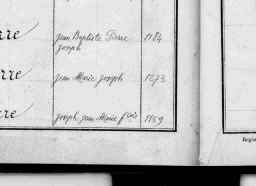 rre Jean Baptiste Pierre 1184
Joseph
rre Jean Marie Joseph 1073
re Joseph Jean Marie fois 1169
Regis